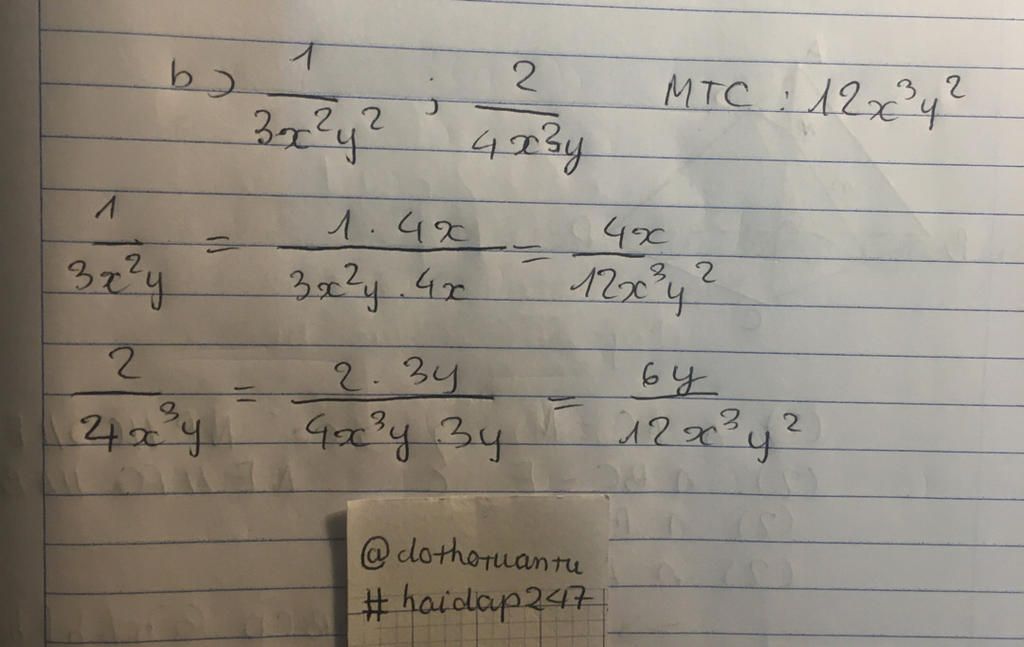 b) 1/3x²y² ; 2/4x³y MTC : 12x³y²
1/3x²y = 1 . 4x/3x²y . 4x = 4x/12x³y²
2/4x³y = 2 . 3y/4x³y . 3y = 6y/12x³y²
@dothotuantu
# haidap247